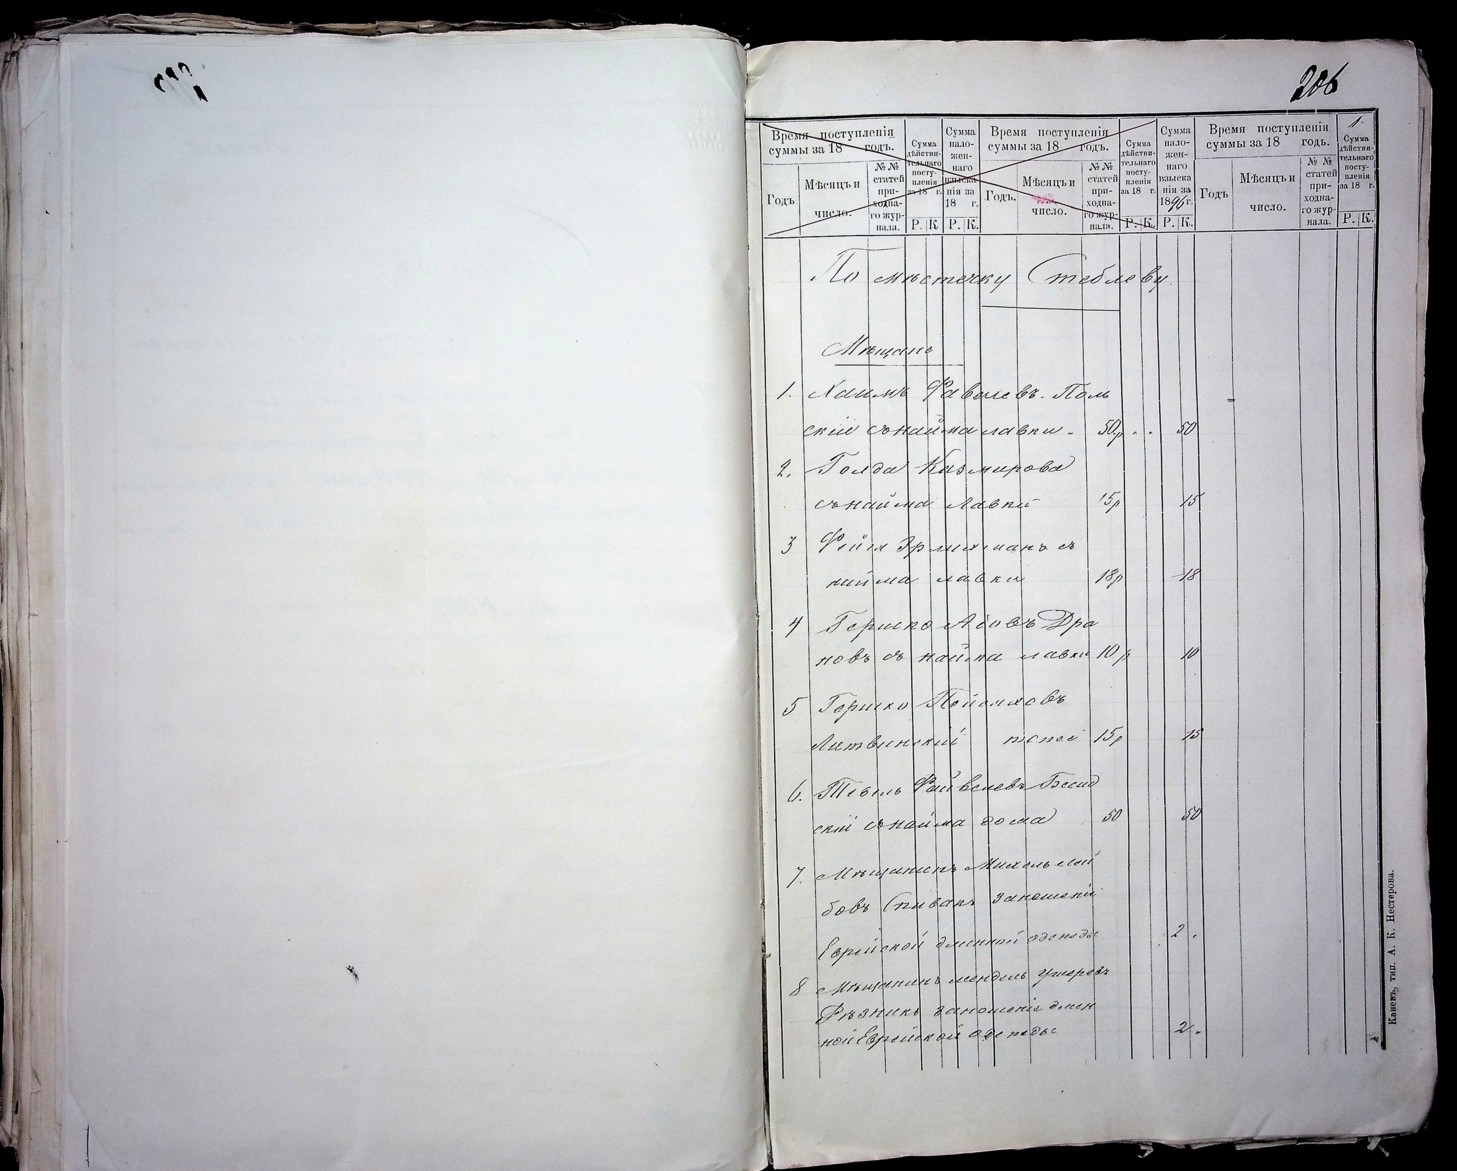 206
1
Время поступленія суммы за 18 годъ.
Сумма дѣйстви-тельнаго посту-пленія за 18 г.
Сумма нало-жен-наго взыска нія за 18 г.
Время поступленія суммы за 18 годъ.
Сумма дѣйстви-тельнаго посту-пленія за 18 г.
Сумма нало-жен-наго взыска нія за 1896 г.
Время поступленія суммы за 18 годъ.
Сумма дѣйстви-тельнаго посту-пленія за 18 г.
Годъ. Мѣсяцъ и число. № № статей при-ходна-го жур-нала. Р. К. Р. К. Годъ. Мѣсяцъ и число. № № статей при-ходна-го жур-нала. Р. К. Р. К. Годъ Мѣсяцъ и число. № № статей при-ходна-го жур-нала. Р. К.
По мѣстечку Стеблеву
Мѣщанъ
1. Хаимъ Поль
скій съ найма лавки. 50р. . 50
2. Голда Казмирова
съ найма лавки 15р 15
3 Фейга съ
найма лавки 18р 18
4 Гершко Дра
новъ съ найма лавки 10р 10
5 Гершко Пейсаховъ
Литвинскій тоже 15р 15
6. Файвелевъ
скій съ найма дома 50 50
7. Мѣщанинъ Михель Лей
бовъ Спивакъ за ношеніе
Еврейской длинной одежды 2.
8 Мѣщанинъ Мендель
Рѣзникъ за ношеніе длин
ной Еврейской одежды 2.
Каневъ, тип. А. К. Нестерова.